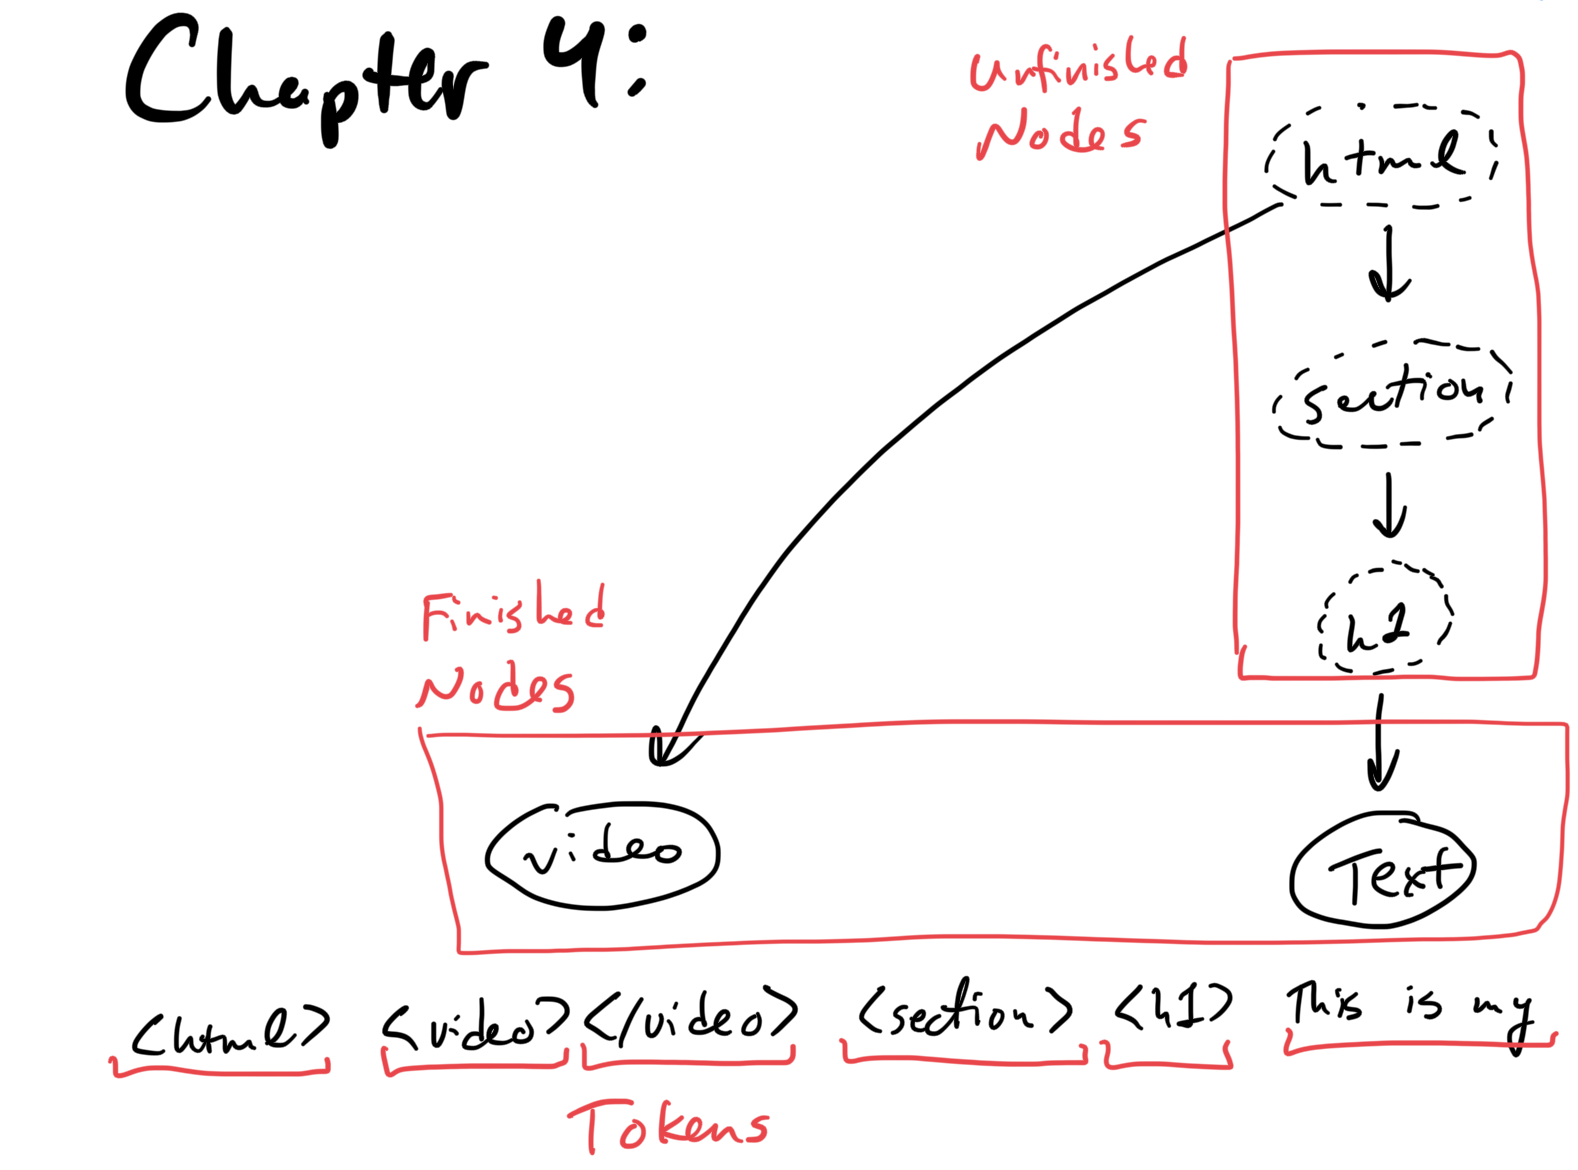 Chapter 4:
Unfinished
Nodes
html
section
h1
Finished
Nodes
video
Text
<html> <video> </video> <section> <h1> This is my
Tokens